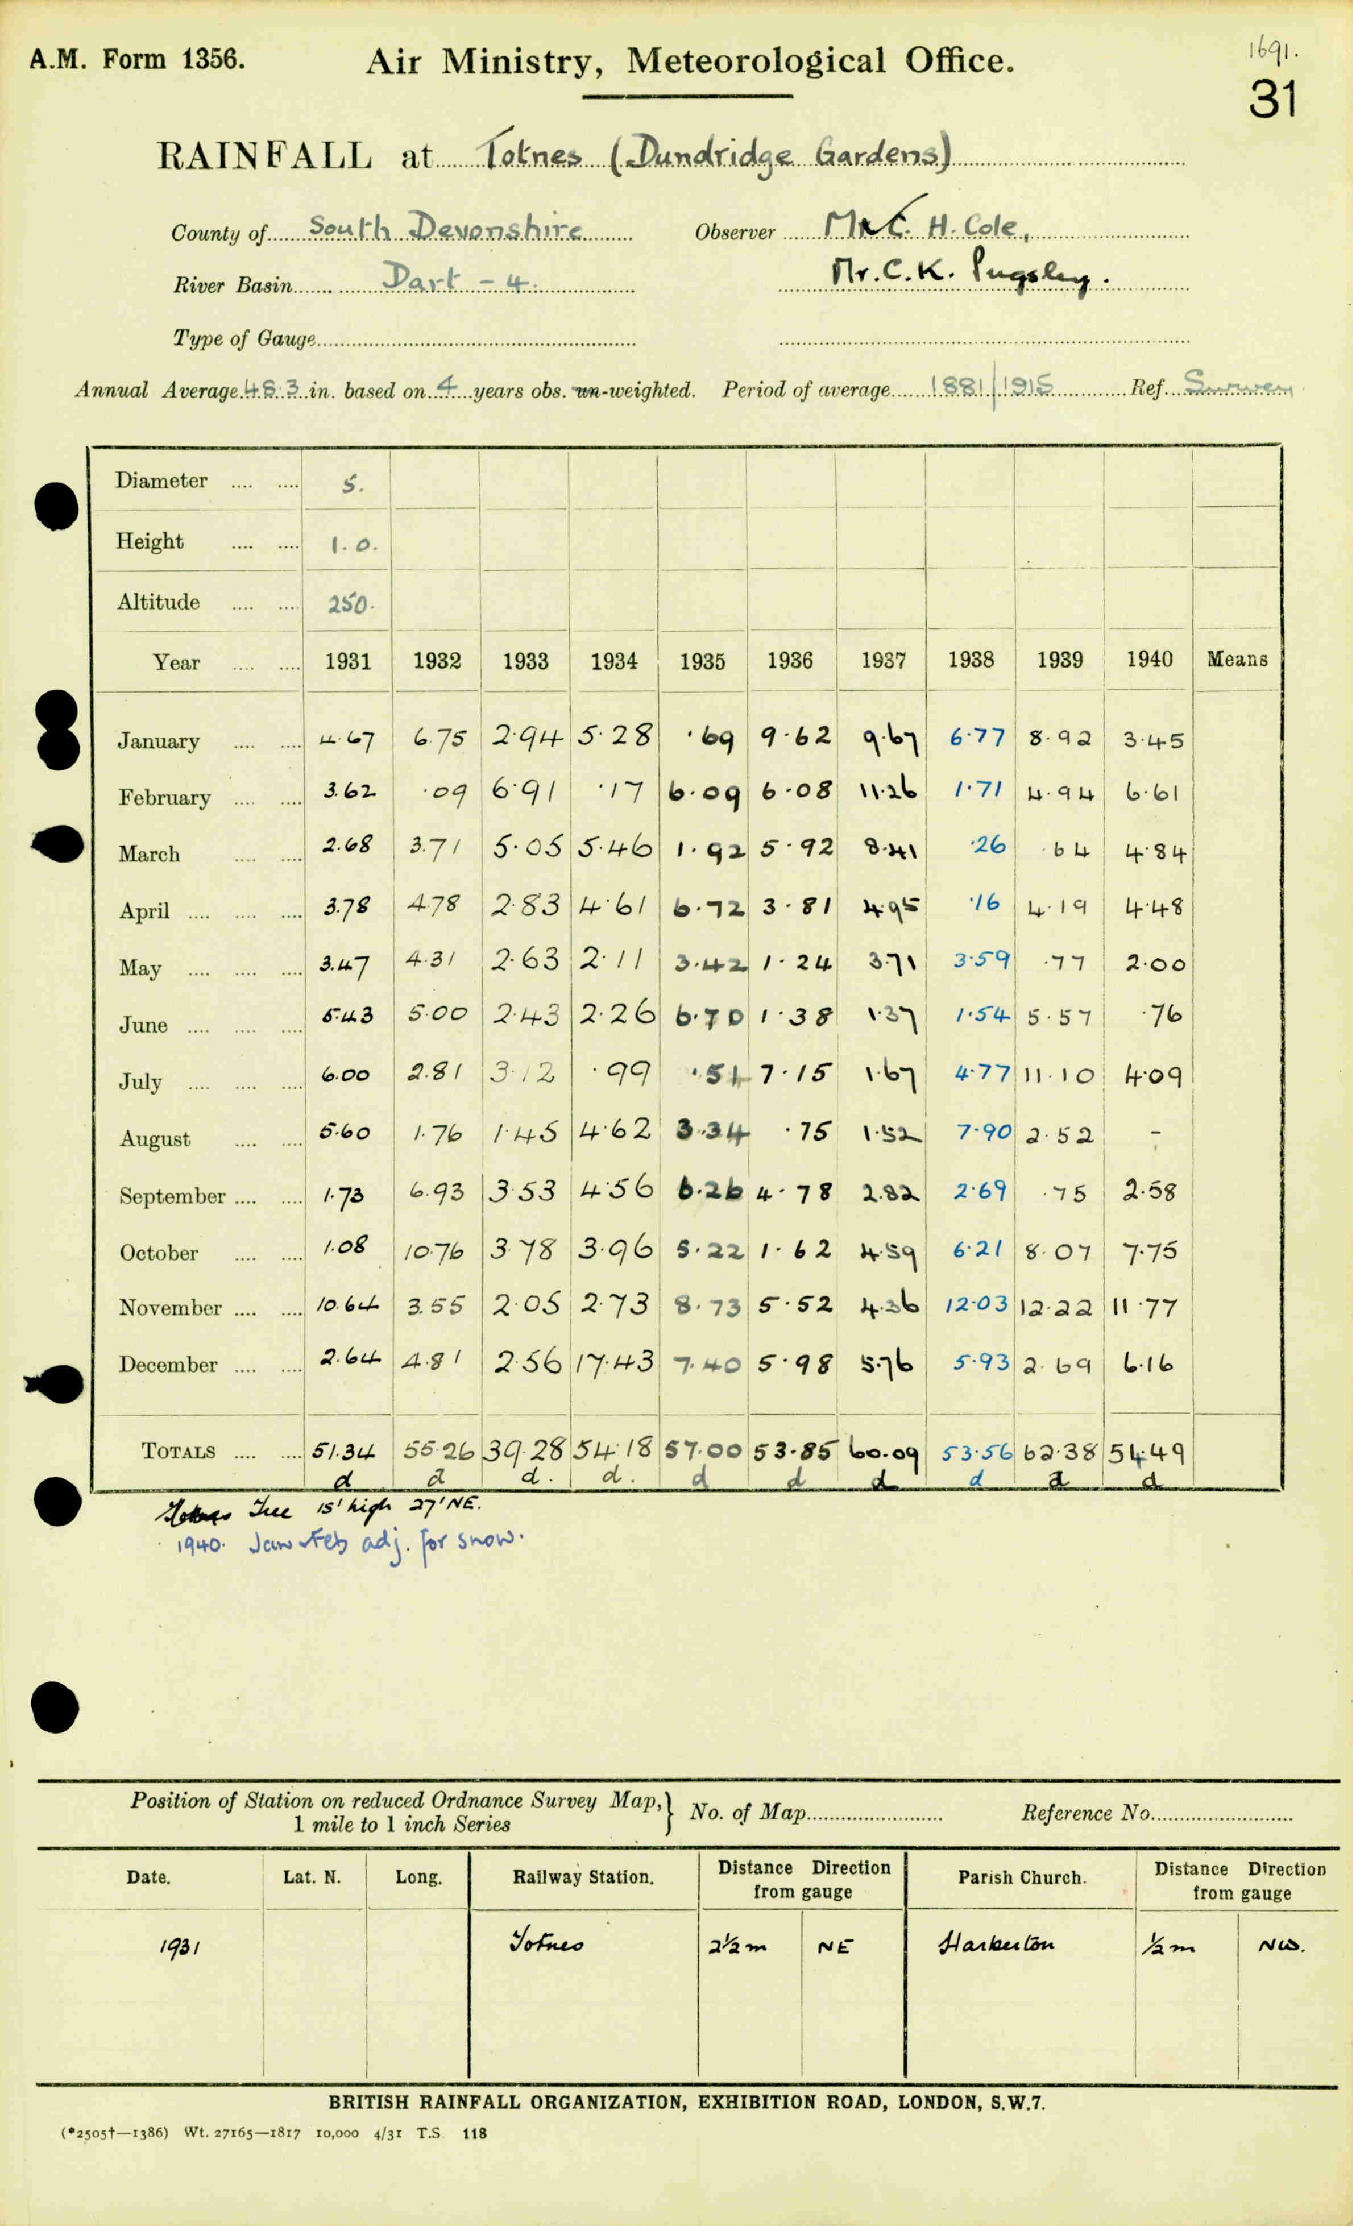 A.M. Form 1356.
Air Ministry, Meteorological Office.
1691.
31
RAINFALL at Totnes (Dundridge Gardens)
County of South Devonshire Observer Mr C. H. Cole,
River Basin Dart - 4. Mr. C. K. Pugsley.
Type of Gauge
Annual Average 48.3 in. based on 4 years obs. un-weighted. Period of average 1881/1915 Ref. Survey
Diameter 5.
Height 1.0.
Altitude 250.
Year 1931 1932 1933 1934 1935 1936 1937 1938 1939 1940 Means
January 4.67 6.75 2.94 5.28 .69 9.62 9.67 6.77 8.92 3.45
February 3.62 .09 6.91 .17 6.09 6.08 11.26 1.71 4.94 6.61
March 2.68 3.71 5.05 5.46 1.92 5.92 8.41 .26 .64 4.84
April 3.78 4.78 2.83 4.61 6.72 3.81 4.95 .16 4.19 4.48
May 3.47 4.31 2.63 2.11 3.42 1.24 3.71 3.59 .77 2.00
June 5.43 5.00 2.43 2.26 6.70 1.38 1.37 1.54 5.57 .76
July 6.00 2.81 3.12 .99 .51 7.15 1.67 4.77 11.10 4.09
August 5.60 1.76 1.45 4.62 3.34 .75 1.52 7.90 2.52 -
September 1.73 6.93 3.53 4.56 6.26 4.78 2.82 2.69 .75 2.58
October 1.08 10.76 3.78 3.96 5.22 1.62 4.59 6.21 8.07 7.75
November 10.64 3.55 2.05 2.73 8.73 5.52 4.36 12.03 12.22 11.77
December 2.64 4.81 2.56 17.43 7.40 5.98 5.76 5.93 2.69 6.16
TOTALS 51.34 55.26 39.28 54.18 57.00 53.85 60.09 53.56 62.38 54.49
d d d. d. d d d d d d
Tree 15' high 27' NE.
1940. Jan + Feb adj. for snow.
Position of Station on reduced Ordnance Survey Map, } No. of Map Reference No.
1 mile to 1 inch Series
Date. Lat. N. Long. Railway Station. Distance Direction from gauge Parish Church. Distance Direction from gauge
1931 Totnes 2½ m NE Harberton ½ m NW.
BRITISH RAINFALL ORGANIZATION, EXHIBITION ROAD, LONDON, S.W.7.
(*2505†—1386) Wt. 27165—1817 10,000 4/31 T.S. 118